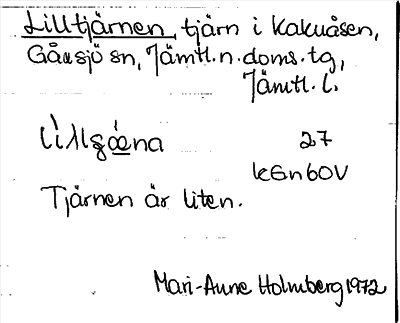 Lilltjärnen, tjärn i Kakuåsen,
Gåxsjö sn, Jämtl. n. doms. tg,
Jämtl. l.
27
Tjärnen är liten.
Mari-Anne Holmberg 1972